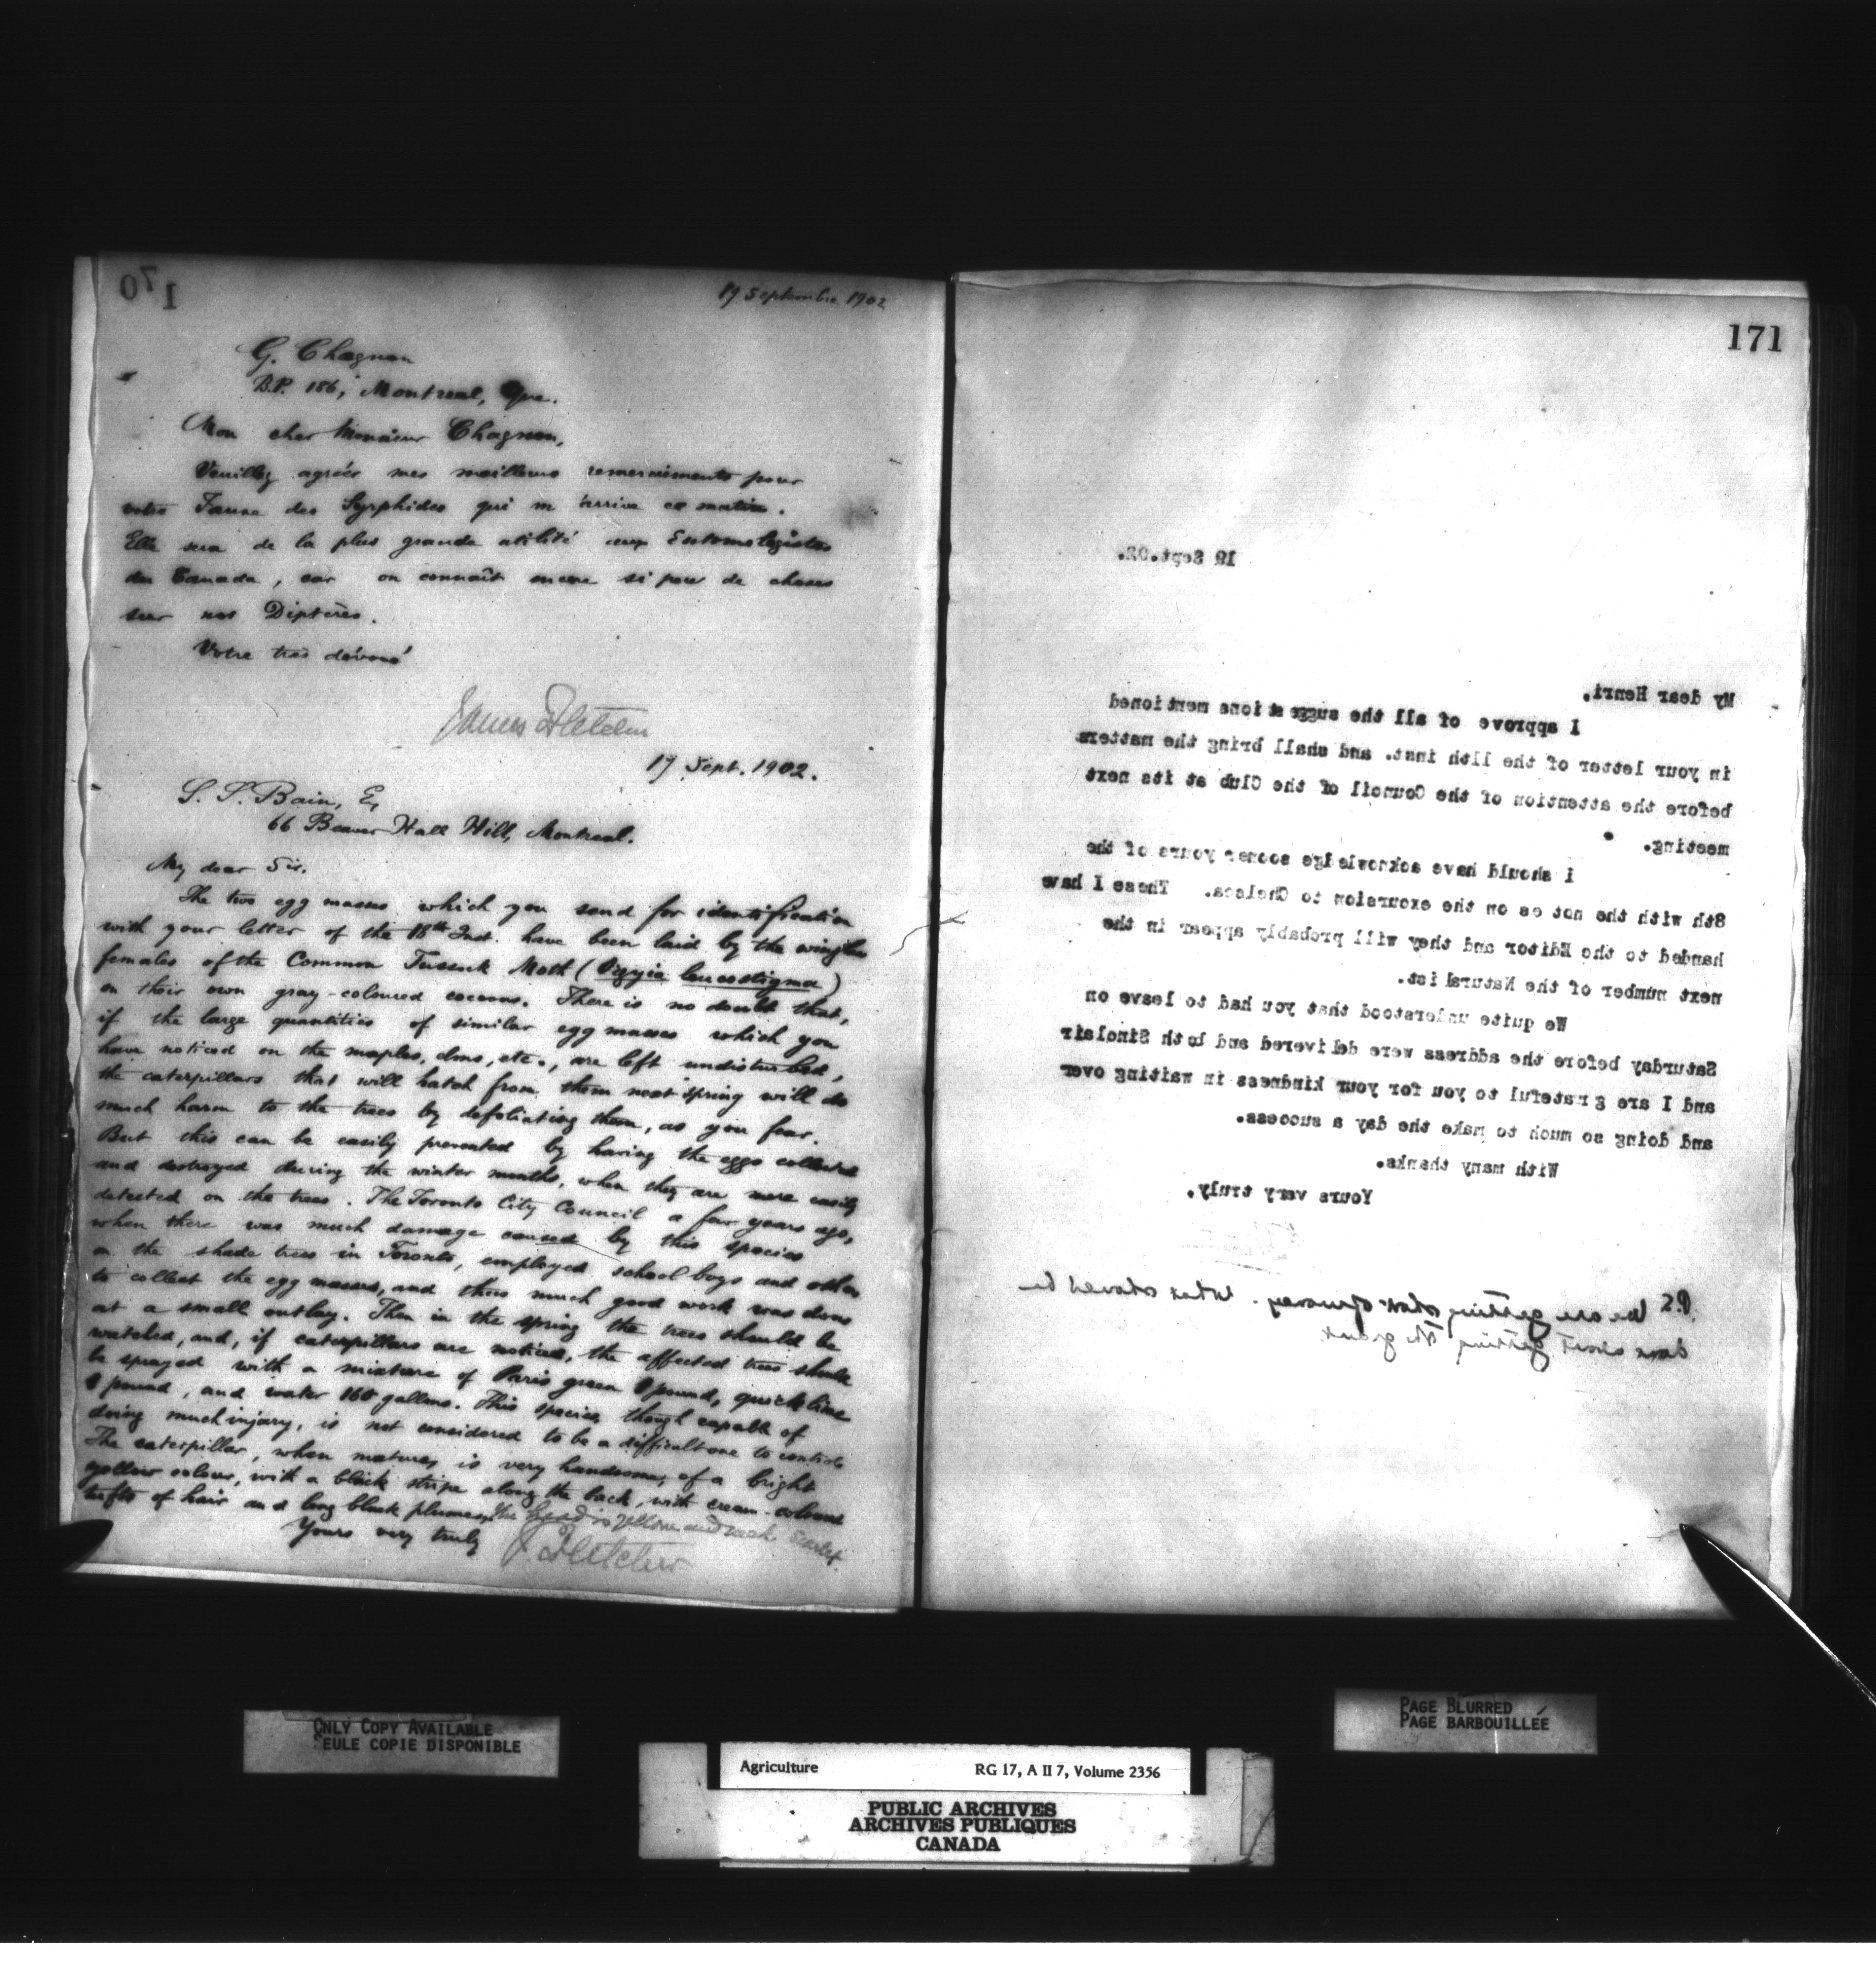 170
19 Septembre 1902
G. Chagnon
B.P. 186, Montreal, Que.
Mon cher Monsieur Chagnon,
Veuillez agréer mes meilleurs remerciments pour
votre Faune des Syrphides qui m'arrive ce matin.
Elle sera de la plus grande utilité aux Entomologistes
du Canada, car on connaît encore si peu de choses
sur nos Diptères.
Votre très dévoué
James Fletcher
19 Sept. 1902.
S. S. Bain, E,
66 Beaver Hall Hill, Montreal.
My dear Sir.
The two egg masses which you send for identification
with your letter of the 18th Inst. have been laid by the wingless
females of the Common Tussock Moth (Orgyia leucostigma)
on their own gray-coloured cocoons. There is no doubt that,
if the large quantities of similar egg masses which you
have noticed on the maples, elms, etc., are left undisturbed,
the caterpillars that will hatch from them next spring will do
much harm to the trees by defoliating them, as you fear.
But this can be easily prevented by having the eggs collected
and destroyed during the winter months, when they are more easily
detected on the trees. The Toronto City Council a few years ago,
when there was much damage caused by this species
on the shade trees in Toronto, employed school boys and others
to collect the egg masses, and thus much good work was done
at a small outlay. Then in the spring the trees should be
watched, and, if caterpillars are noticed, the affected trees should
be sprayed with a mixture of Paris green 1 pound, quick lime
1 pound, and water 160 gallons. This species, though capable of
doing much injury, is not considered to be a difficult one to control.
The caterpillar, when mature, is very handsome, of a bright
yellow colour, with a black stripe along the back, with cream-coloured
tufts of hair and long black plumes. The head is yellow and neck scarlet.
Yours very truly
J. Fletcher
171
19 Sept.02.
My dear Henri,
I approve of all the suggestions mentioned
in your letter of the 11th inst. and shall bring the matters
before the attention of the Council of the Club at its next
meeting.
I should have acknowledge sooner yours of the
8th with the notes on the excursion to Chelsea. These I have
handed to the Editor and they will probably appear in the
next number of the Naturalist.
We quite understood that you had to leave on
Saturday before the address were delivered and both Sinclair
and I are grateful to you for your kindness in waiting over
and doing so much to make the day a success.
With many thanks.
Yours very truly,
P.S. We are getting short of money. What should be
done about getting the grant
ONLY COPY AVAILABLE
SEULE COPIE DISPONIBLE
PAGE BLURRED
PAGE BARBOUILLÉE
Agriculture RG 17, A II 7, Volume 2356
PUBLIC ARCHIVES
ARCHIVES PUBLIQUES
CANADA